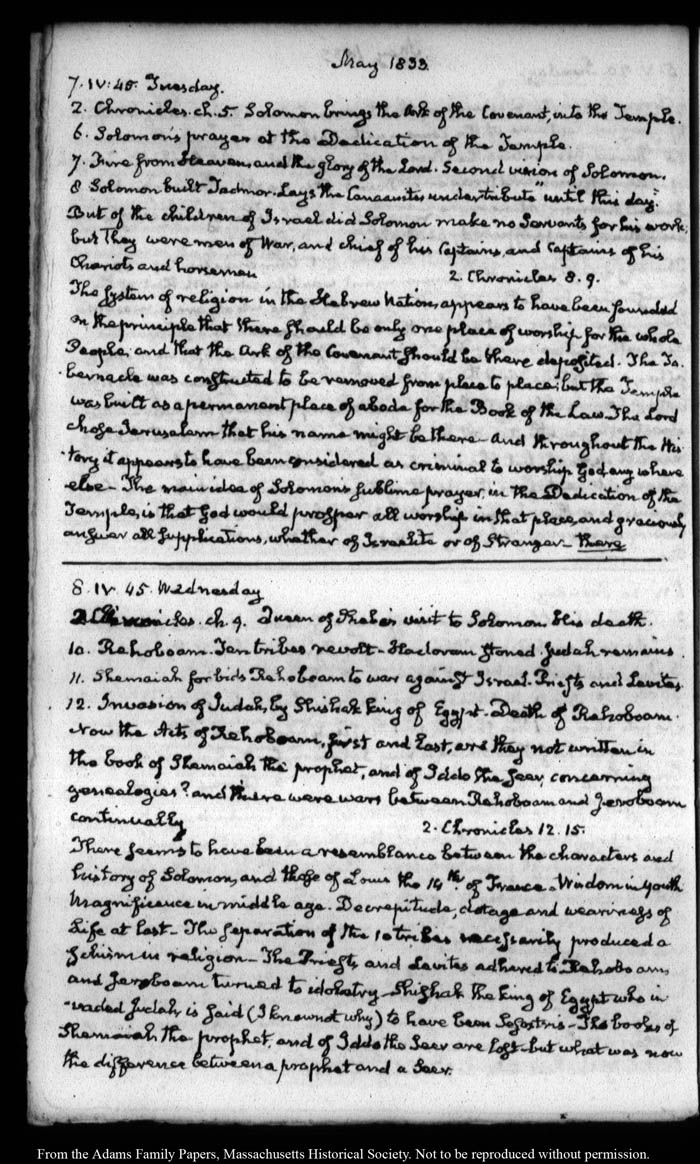 May 1833.
7. IV: 45. Tuesday.
2. Chronicles. ch. 5. Solomon brings the Ark of the Covenant, into the Temple.
6. Solomon's prayer at the Dedication of the Temple.
7. Fire from Heaven, and the glory of the Lord. Second vision of Solomon.
8 Solomon built Tadmor. Lays the Canaanites under tribute "until this day."
But of the children of Israel did Solomon make no Servants for his work;
but They were men of War, and chief of his Captains, and Captains of his
Chariots and horsemen 2. Chronicles 8. 9.
The System of religion in the Hebrew Nation, appears to have been founded
on the principle that there should be only one place of worship for the whole
People, and that the Ark of the Covenant should be there deposited. The Ta-
-bernacle was constructed to be removed from place to place; but the Temple
was built as a permanent place of abode for the Book of the Law. The Lord
chose Jerusalem that his name might be there- And throughout the His-
-tory it appears to have been considered as criminal to worship God any where
else- The main idea of Solomon's sublime prayer, in the Dedication of the
Temple, is that God would prosper all worship in that place, and graciously
answer all supplications, whether of Israelite or of Stranger- there
8. IV. 45. Wednesday
2 Chronicles. ch. 9. Queen of Sheba's visit to Solomon. His death.
10. Rehoboam. Ten tribes revolt- Hadoram stoned. Judah remains.
11. Shemaiah forbids Rehoboam to war against Israel. Priests and Levites.
12. Invasion of Judah, by Shishak king of Egypt. Death of Rehoboam.
Now the Acts of Rehoboam, first and last, are they not written in
the book of Shemaiah the prophet, and of Iddo the Seer, concerning
genealogies? and there were wars between Rehoboam and Jeroboam
continually 2. Chronicles 12. 15.
There seems to have been a resemblance between the characters and
history of Solomon, and those of Louis the 14th. of France. Wisdom in youth
Magnificence in middle age. Decrepitude, dotage and weariness of
Life at last- The separation of the 10 tribes necessarily produced a
Schism in religion- The Priests and Levites adhered to Rehoboam,
and Jeroboam turned to idolatry- Shishak the king of Egypt who in
-vaded Judah is said (I know not why) to have been Sesostris- The books of
Shemaiah the prophet, and of Iddo the Seer are lost- but what was now
the difference between a prophet and a Seer.
From the Adams Family Papers, Massachusetts Historical Society. Not to be reproduced without permission.